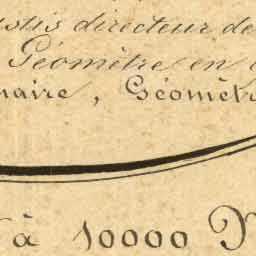 directeur de
Géomètre en
naire, Géomèt
à 10000